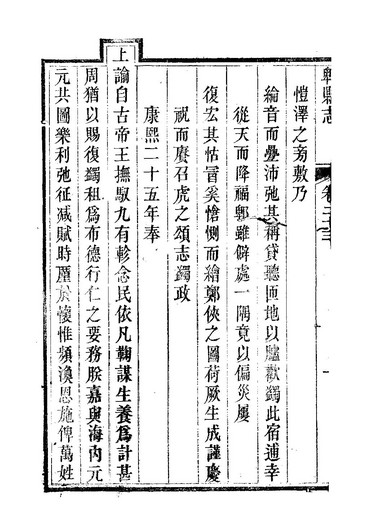 鄆縣志 卷二三 一
愷澤之旁敷乃
綸音而疊沛弛其稱貸聽匝地以臚歡蠲此宿逋幸
從天而降福鄆雖僻處一隅竟以偏災屢
復宏其怙冒奚愴惻而繪鄭俠之圖荷厥生成謹慶
祝而賡召虎之頌志蠲政
康熙二十五年奉
上諭自古帝王撫馭九有軫念民依凡鞠謀生養爲計甚
周猶以賜復蠲租爲布德行仁之要務朕嘉與海內元
元共圖樂利弛征減賦時厪於懷惟頻渙恩施俾萬姓